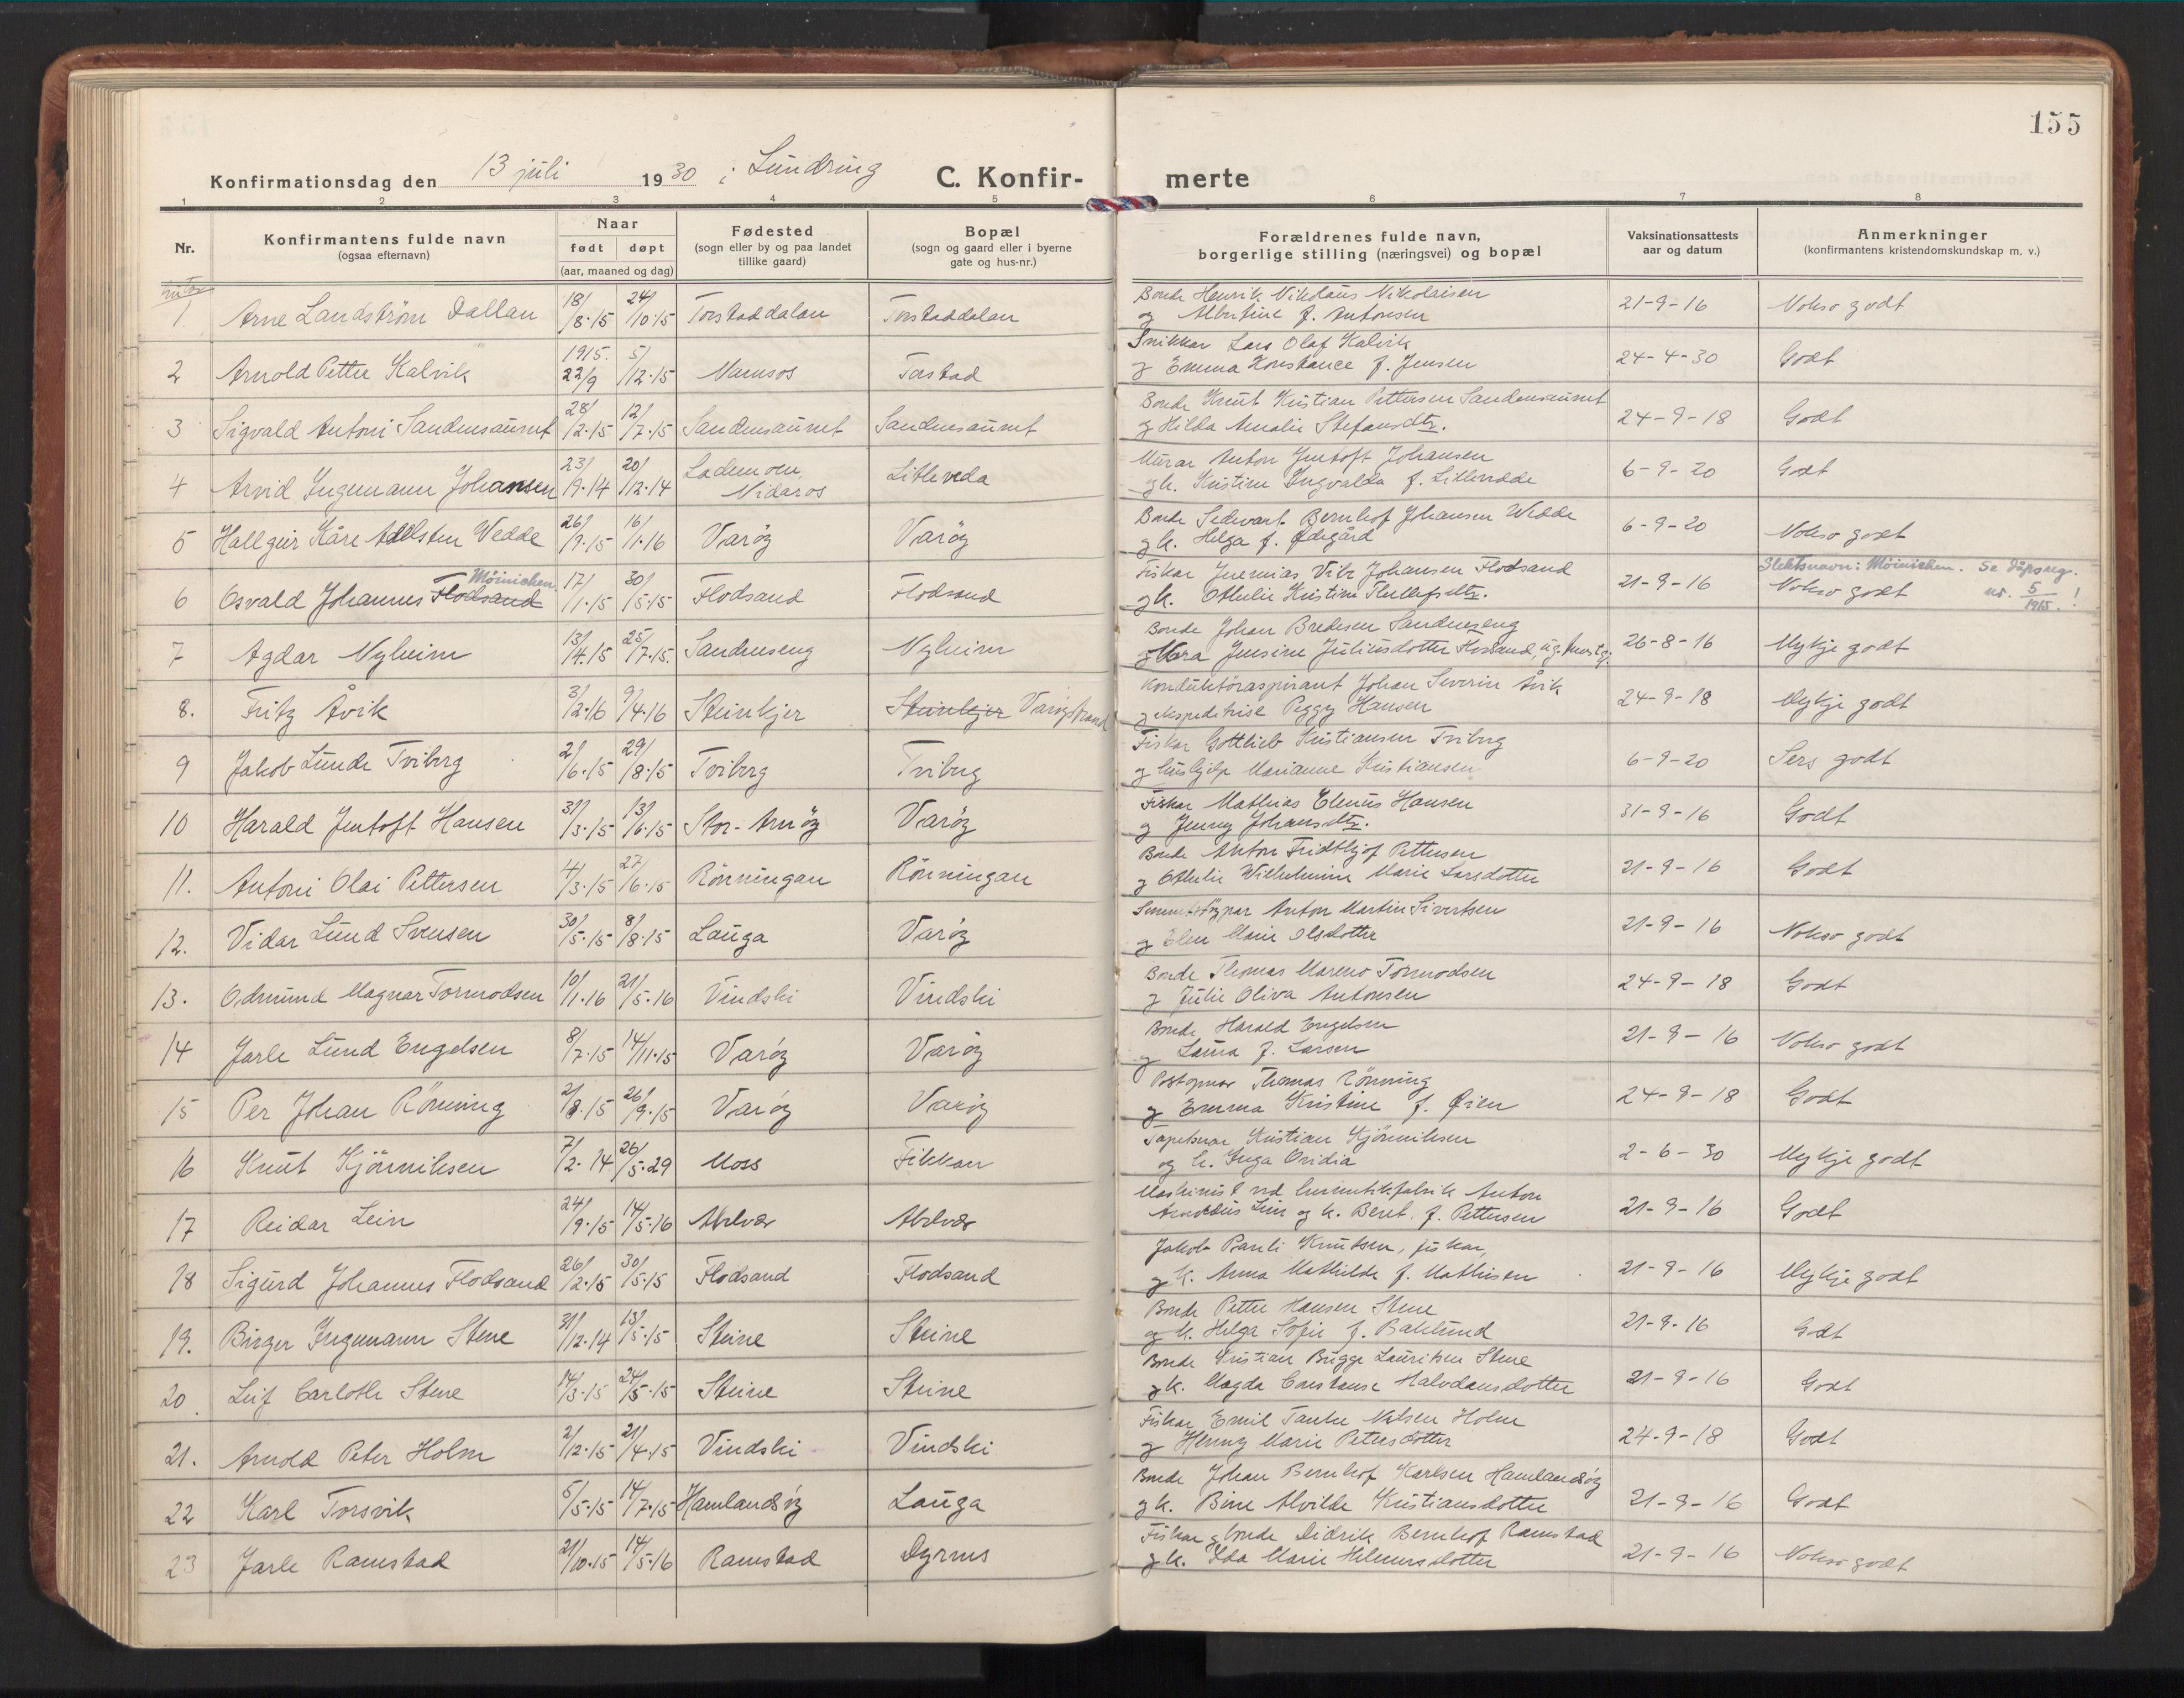 155
Konfirmationsdag den 13 juli 1930 i Lundring C. Konfirmerte
1 2 3 4 5 6 7 8
Nr. Konfirmantens fulde navn (ogsaa efternavn) Naar født døpt (aar, maaned og dag) Fødested (sogn eller by og paa landet tillike gaard) Bopæl (sogn og gaard eller i byerne gate og hus-nr.) Forældrenes fulde navn, borgerlige stilling (næringsvei) og bopæl Vaksinationsattests aar og datum Anmerkninger (konfirmantens kristendomskundskap m. v.)
1. Arne Landström Dallan 18/8.15 24/10.15 Torstaddalan Torstaddalan Bonde Henrik Nikolaus Nikolaisen
og Albertine f. Antonsen 21-9-16 Nokso godt
2 Arnold Petter Kalvik 1915. 22/9 5/12.15 Namsos Torstad Snikkar Lars Olaf Kalvik
og Emma Konstance f. Jensen 24-4-30 Godt
3 Sigvald Antoni Sandensaunet 28/2.15 12/7.15 Sandensaunet Sandensaunet Bonde Knut Kristian Pettersen Sandensaunet
og Hilda Amalie Stefansdtr. 24-9-18 Godt
4 Arvid Ingemann Johansen 23/9.14 20/12.14 Lademoen, Nidaros Litleveda Murar Anton Jentoft Johansen
og k. Kristine Ingvalda f. Lillevedde 6-9-20 Godt
5 Hallgeir Kåre Adelsten Wedde 26/9.15 16/1.16 Varöy Varöy Bonde Sedevart Bernhof Johansen Wedde
og k. Helga f. Ødegård 6-9-20 Nokso godt
6 Osvald Johannes Flodsand Möinichen 17/1.15 30/5.15 Flodsand Flodsand Fiskar Jeremias Vilr Johansen Flodsand
og k. Othelie Kristine Thellefsdtr. 21-9-16 Slektsnavn: Möinichen. Se dåpsreg. nr. 5/1915.!
Nokso godt
7 Agdar Nyheim 13/4.15 25/7.15. Sandneseng Nyheim Bonde Johan Bredesen Sandneseng
og Mara Jensine Juliusdotter 26-8-16 Mykje godt
8. Fritz Åvik 3/2.16 9/4.16 Steinkjer Steinkjer Varöystrand Konduktöraspirant Johan Severin Åvik
og ekspeditrise Peggy Hansen 24-9-18 Mykje godt
9 Jakob Lunde Tviberg 2/6.15 29/8.15 Tviberg Tviberg Fiskar Gottlieb Kristiansen Tviberg
og hushjelp Marianne Kristiansen 6-9-20 Sers godt
10 Harald Jentoft Hansen 31/3.15 13/6.15 Stor-Arnöy Varöy Fiskar Mathias Elenus Hansen
og Jenny Johansdtr. 31-9-16 Godt
11. Antoni Olai Pettersen 4/3.15 27/6.15 Rönningan Rönningan Bonde Anton Fridthjof Pettersen
og Othelie Wilhelmine Marie Larsdotter 21-9-16 Godt
12. Vidar Lund Svensen 30/5.15 8/8.15 Lauga Varöy Anton Martin Sivertsen
og Elen Marie Olsdotter 21-9-16 Nokso godt
13. Odmund Magnar Tormodsen 10/1.16 21/5.16 Vindski Vindski Bonde Thomas Mareno Tormodsen
og Julie Oliva Antonsen 24-9-18 Godt
14 Jarle Lund Engelsen 8/7.15 14/11.15 Varöy Varöy Bonde Harald Engelsen
og Laura f. Larsen 21-9-16 Nokso godt
15 Per Johan Rönning 2/8.15 26/9.15 Varöy Varöy Postopnar Thomas Rönning
og Emma Kristine f. Øien 24-9-18 Godt
16 Knut Kjörnniksen 7/2.14 26/5.29 Moss Fikkan Tapetserar Kristian Kjörnniksen
og k. Inga Ovidia 2-6-30 Mykje godt
17 Reidar Lein 24/9.15 14/5.16 Abelvær Abelvær Maskinist ved hermetikfabrik Anton
Arnoldus Lein og k. Beret f. Pettersen 21-9-16 Godt
18 Sigurd Johannes Flodsand 26/2.15 30/5.15 Flodsand Flodsand Jakob Pauli Knutsen, fiskar,
og k. Anna Mathilde f. Mathisen 21-9-16 Mykje godt
19. Birger Ingemann Stene 31/12.14 13/5.15 Steine Steine Bonde Petter Hansen Stene
og k. Helga Sofie f. Baklund 21-9-16 Godt
20. Leif Carlothe Stene 14/3.15 24/5.15 Steine Steine Bonde Kristian Brügge Lauritsen Stene
og k. Magda Constanse Halvdansdotter 21-9-16 Godt
21. Arnold Peter Holm 2/12.15 21/4.15 Vindski Vindski Fiskar Emil Tanke Nilsen Holm
og Henny Marie Petersdotter 24-9-18 Godt
22 Karl Torsvik 5/5.15 14/7.15 Hamlandsöy Lauga Bonde Johan Bernhof Karlsen Hamlandsöy
og k. Bine Alvilde Kristiansdotter 21-9-16 Godt
23 Jarle Ramstad 21/10.15 14/5.16 Ramstad Dyrnes Fiskar og bonde Didrik Bernhof Ramstad
og k. Ida Marie Helmersdotter 21-9-16 Nokso godt